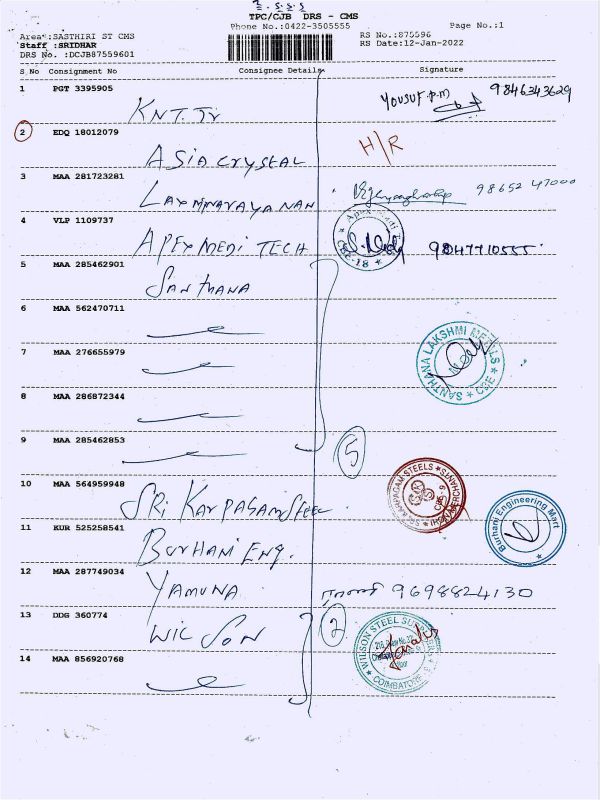 2. S. S. S
TPC/CJB DRS - CMS
Phone No.:0422-3505555 Page No.:1
Area :SASTHIRI ST CMS RS No.:875596
Staff :SRIDHAR RS Date:12-Jan-2022
DRS No. :DCJB87559601
S No Consignment No Consignee Details Signature
1 PGT 3395905 KNT. Tr Yousuf.p.m 9846343629
2 EDQ 18012079 Asia crystal H/R
3 MAA 281723281 Laxminarayanan 98652 47000
4 VLP 1109737 APEX MEDI TECH 9047710555
5 MAA 285462901 Santhana
6 MAA 562470711
7 MAA 276655979 SANTHANA LAKSHMI METALS ★ CBE ★
8 MAA 286872344
9 MAA 285462853 5
10 MAA 564959948 Sri Karpagam Steel SRI KARPAGAM STEELS
11 KUR 525258541 Burhani Eng. Burhani Engineering Mart
12 MAA 287749034 Yamuna 9698824130
13 DDG 360774 WILSON 2 WILSON STEEL COIMBATORE
14 MAA 856920768